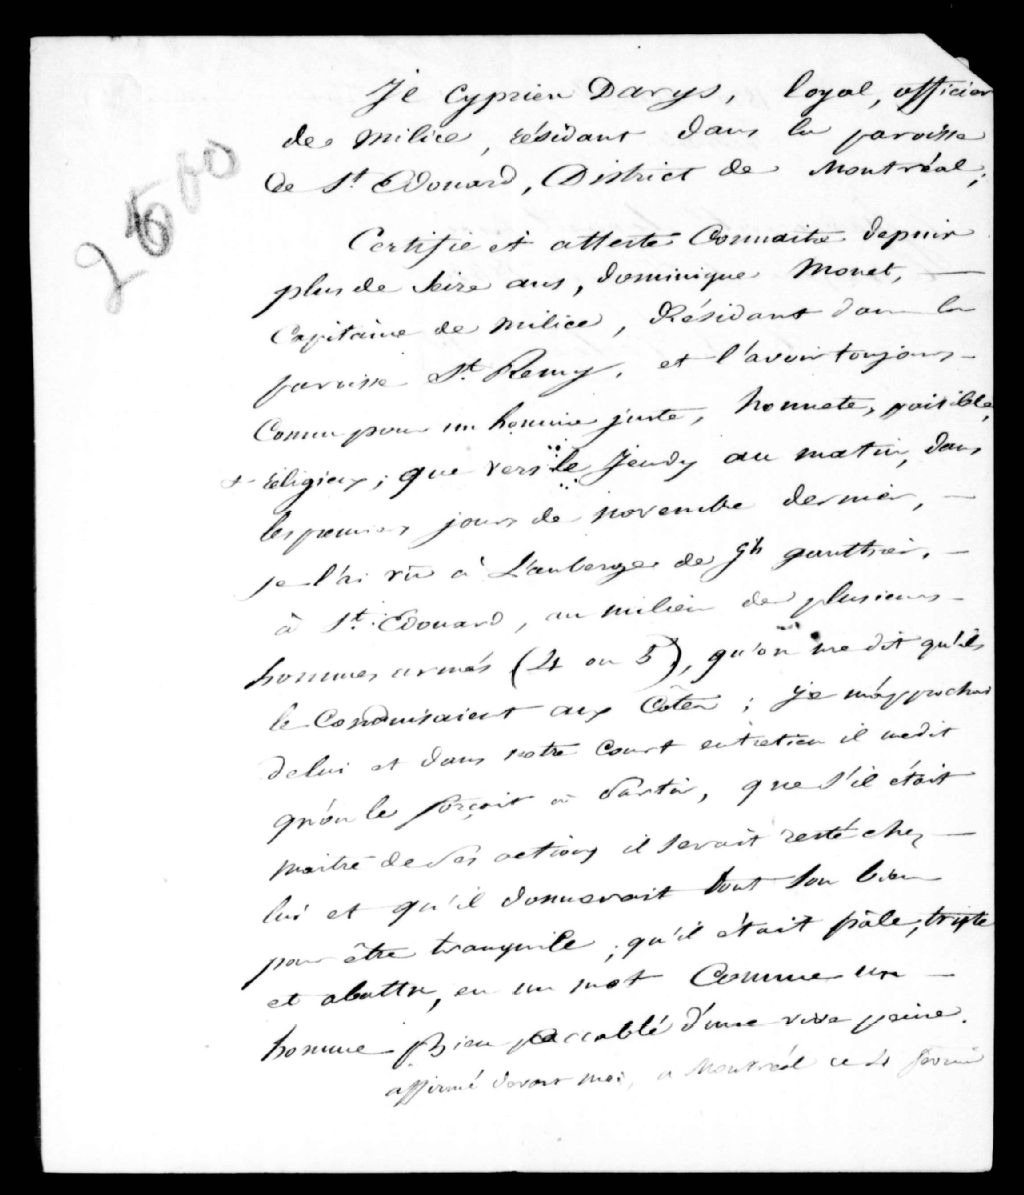 Je Cyprien Davys, loyal, officier
de milice, résidant dans la paroisse
de St Edouard, District de Montréal;
2600
Certifie et atteste Connaitre depuis
plus de seize ans, dominique Monet,
Capitaine de milice, Résidant dans la
paroisse St Remy, et l'avoir toujours
Connu pour un homme juste, honnete, paisible,
et réligieux; que vers le Jeudy au matin, dans
les premiers jours de novembre dernier,
je l'ai vû à L'auberge de gauthier,
à St Edouard, au milieu de plusieurs
hommes armés (4 ou 5), qu'on me dit qu'ils
le Conduisaient aux Côtes; je m'approchai
de lui et dans notre court entretien il me dit
qu'on le forçait à Partir, que s'il était
maitre de ses actions il serait resté chez
lui et qu'il donnerait tout son bien
pour être tranquile; qu'il était pâle, triste
et abattu, en un mot Comme un
homme Bien accablé d'une vive peine.
affirmé devant moi, a Montréal ce 4 fevrier